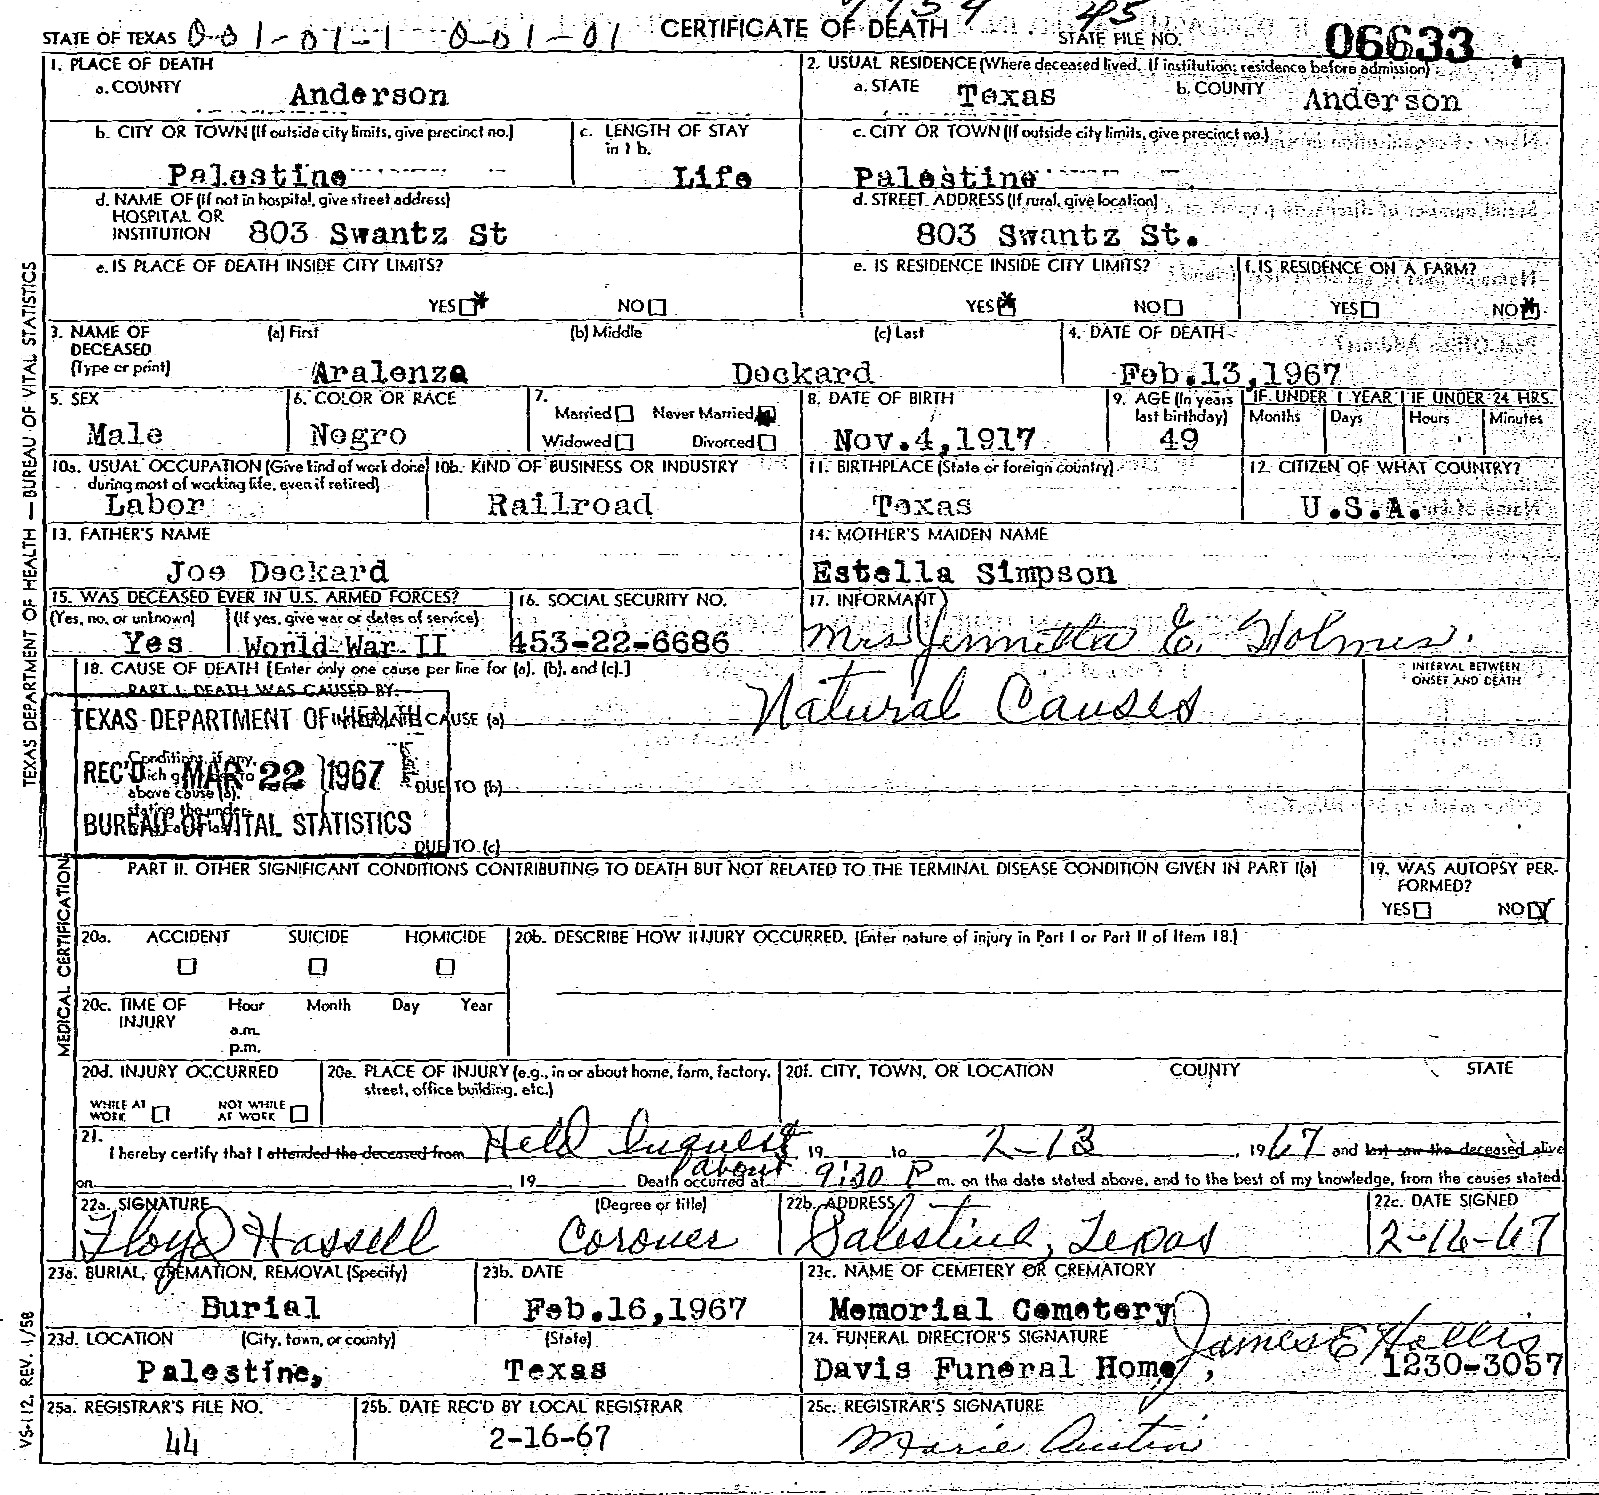 STATE OF TEXAS 001-01-1 001-01 CERTIFICATE OF DEATH STATE FILE NO. 45 06633
1. PLACE OF DEATH
a. COUNTY Anderson
2. USUAL RESIDENCE (Where deceased lived. If institution: residence before admission)
a. STATE Texas b. COUNTY Anderson
b. CITY OR TOWN (If outside city limits, give precinct no.) Palestine
c. LENGTH OF STAY in 1 b. Life
c. CITY OR TOWN (If outside city limits, give precinct no.) Palestine
d. NAME OF (If not in hospital, give street address) HOSPITAL OR INSTITUTION 803 Swantz St
d. STREET ADDRESS (If rural, give location) 803 Swantz St.
e. IS PLACE OF DEATH INSIDE CITY LIMITS?
YES NO
e. IS RESIDENCE INSIDE CITY LIMITS?
YES NO
f. IS RESIDENCE ON A FARM?
YES NO
3. NAME OF DECEASED (Type or print)
(a) First Aralenza (b) Middle (c) Last Deckard
4. DATE OF DEATH Feb.13,1967
5. SEX Male
6. COLOR OR RACE Negro
7. Married Never Married
Widowed Divorced
8. DATE OF BIRTH Nov.4,1917
9. AGE (In years last birthday) 49
IF UNDER 1 YEAR Months Days
IF UNDER 24 HRS. Hours Minutes
10a. USUAL OCCUPATION (Give kind of work done during most of working life, even if retired) Labor
10b. KIND OF BUSINESS OR INDUSTRY Railroad
11. BIRTHPLACE (State or foreign country) Texas
12. CITIZEN OF WHAT COUNTRY? U.S.A.
13. FATHER'S NAME Joe Deckard
14. MOTHER'S MAIDEN NAME Estella Simpson
15. WAS DECEASED EVER IN U.S. ARMED FORCES?
(Yes, no, or unknown) Yes (If yes, give war or dates of service) World War II
16. SOCIAL SECURITY NO. 453-22-6686
17. INFORMANT Mrs Jennetta E. Holmes.
18. CAUSE OF DEATH [Enter only one cause per line for (a), (b), and (c).]
INTERVAL BETWEEN ONSET AND DEATH
PART I. DEATH WAS CAUSED BY:
IMMEDIATE CAUSE (a) Natural Causes
Conditions, if any, which gave rise to above cause (a), stating the underlying cause last.
DUE TO (b)
DUE TO (c)
TEXAS DEPARTMENT OF HEALTH
REC'D MAR 22 1967
BUREAU OF VITAL STATISTICS
PART II. OTHER SIGNIFICANT CONDITIONS CONTRIBUTING TO DEATH BUT NOT RELATED TO THE TERMINAL DISEASE CONDITION GIVEN IN PART I(a)
19. WAS AUTOPSY PERFORMED?
YES NO
20a. ACCIDENT SUICIDE HOMICIDE
20b. DESCRIBE HOW INJURY OCCURRED. (Enter nature of injury in Part I or Part II of Item 18.)
20c. TIME OF INJURY Hour Month Day Year
a.m.
p.m.
20d. INJURY OCCURRED
WHILE AT WORK NOT WHILE AT WORK
20e. PLACE OF INJURY (e.g., in or about home, farm, factory, street, office building, etc.)
20f. CITY, TOWN, OR LOCATION COUNTY STATE
21. I hereby certify that I attended the deceased from Held Inquest 19 to 2-13, 1967 and last saw the deceased alive
on 19 Death occurred at about 9:30 P m. on the date stated above, and to the best of my knowledge, from the causes stated.
22a. SIGNATURE Floyd Hassell (Degree or title) Coroner
22b. ADDRESS Palestine, Texas
22c. DATE SIGNED 2-16-67
23a. BURIAL, CREMATION, REMOVAL (Specify) Burial
23b. DATE Feb.16,1967
23c. NAME OF CEMETERY OR CREMATORY Memorial Cemetery
23d. LOCATION (City, town, or county) (State)
Palestine, Texas
24. FUNERAL DIRECTOR'S SIGNATURE James E Hollis
Davis Funeral Home, 1230-3057
25a. REGISTRAR'S FILE NO. 44
25b. DATE REC'D BY LOCAL REGISTRAR 2-16-67
25c. REGISTRAR'S SIGNATURE Marie Austin
TEXAS DEPARTMENT OF HEALTH — BUREAU OF VITAL STATISTICS
MEDICAL CERTIFICATION
VS-112, REV. 1/58